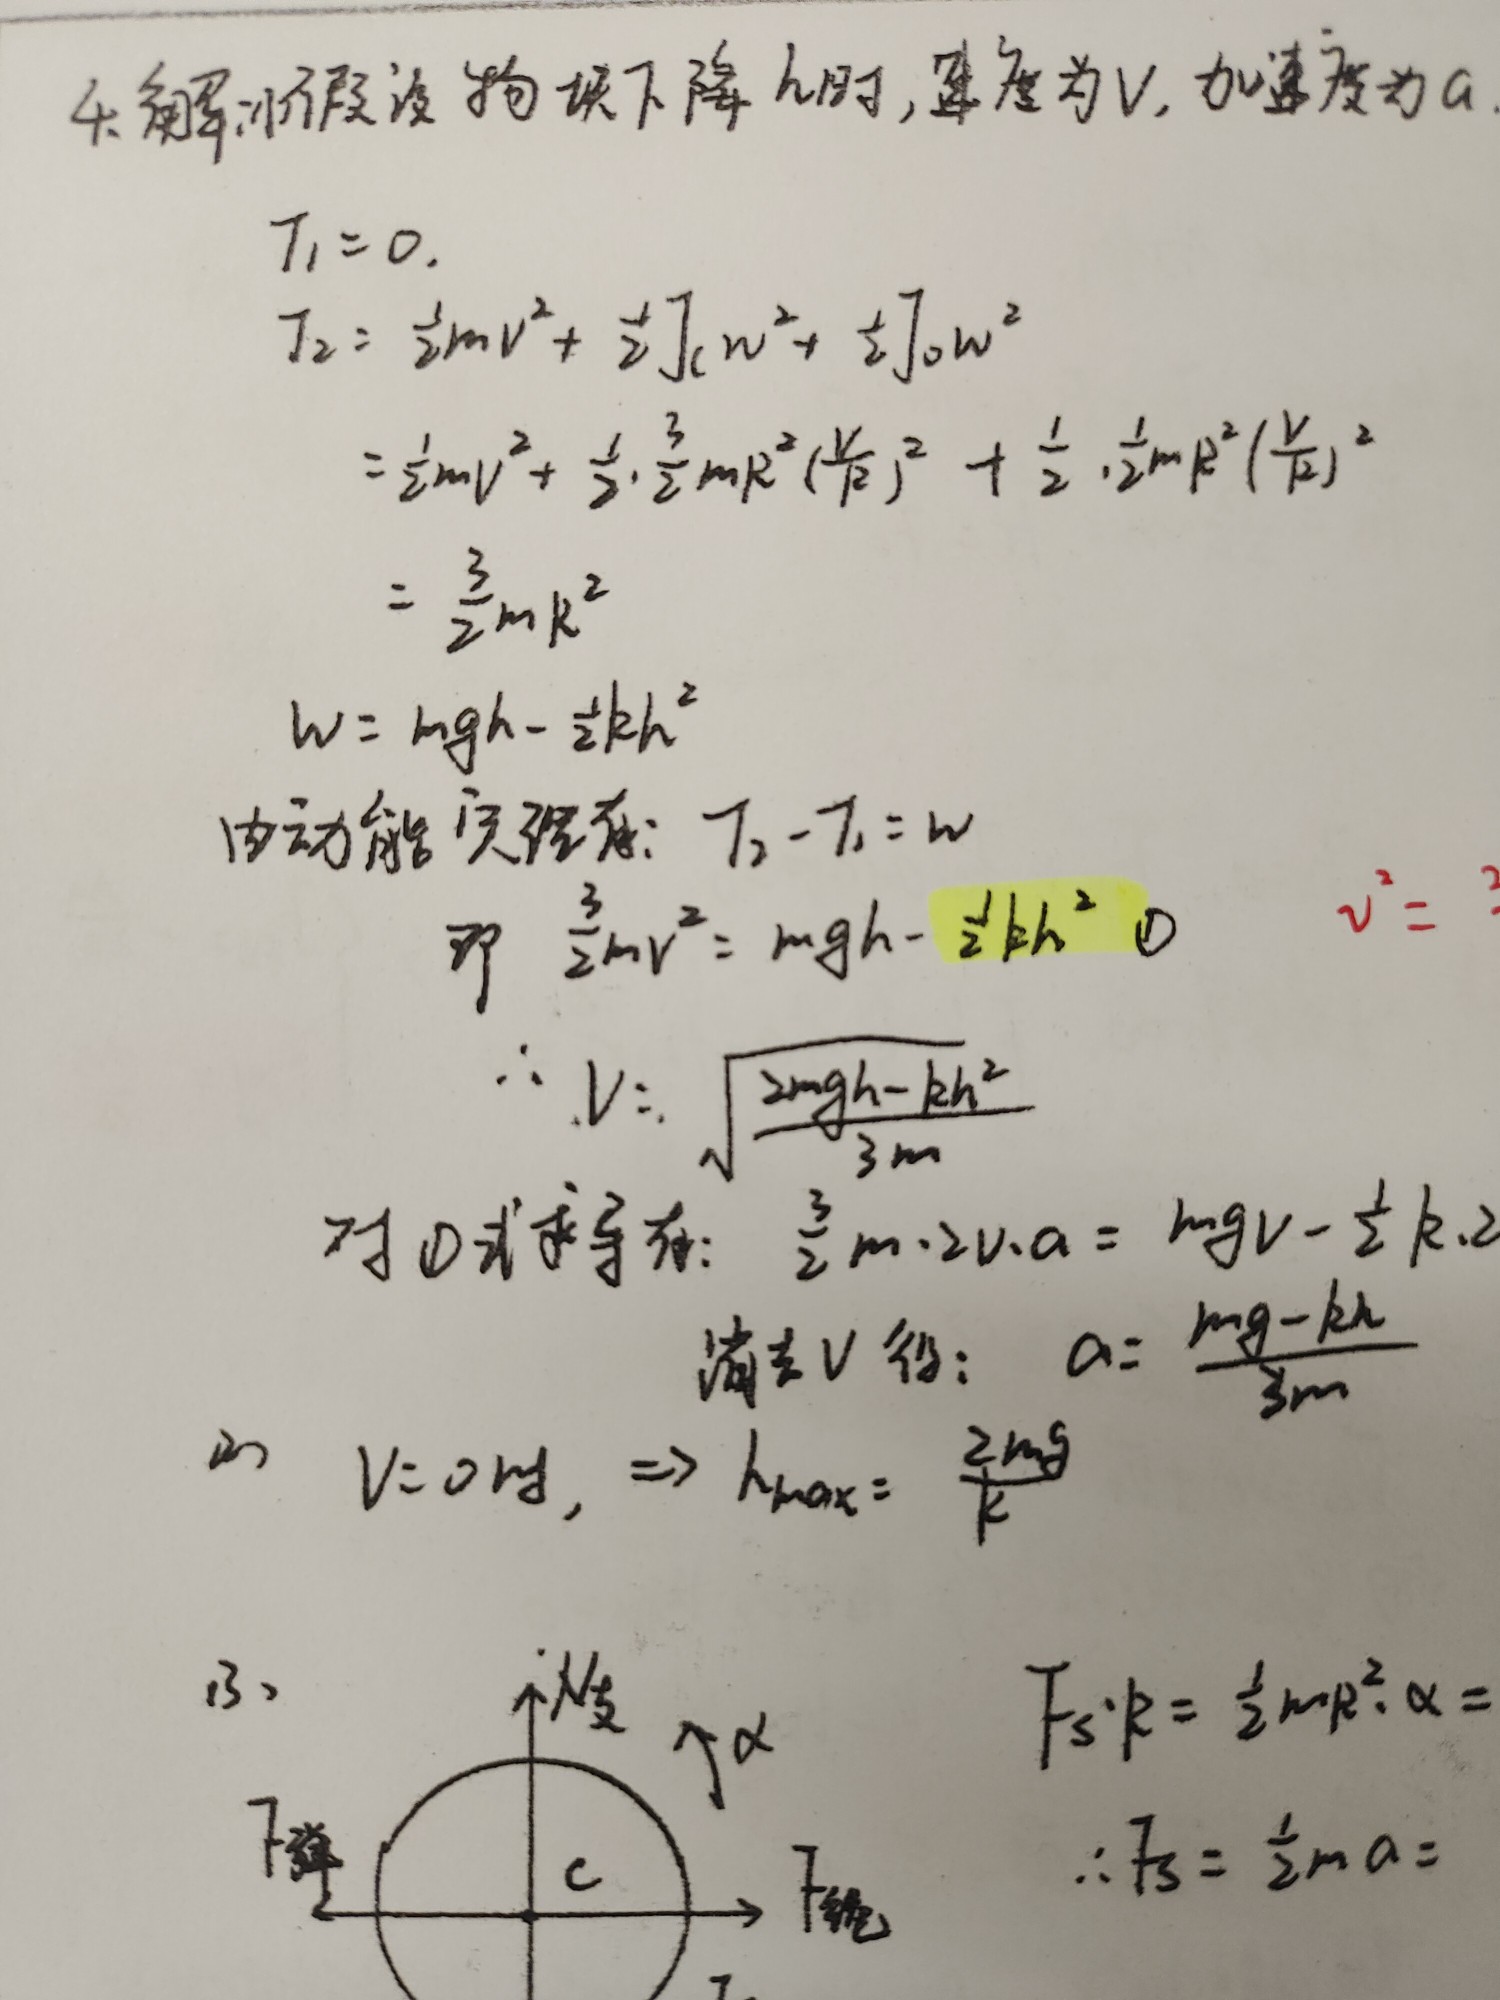 4. 解:(1)假设物块下降h时,速度为V,加速度为a.
T₁=0.
T₂= ½mV²+ ½J_cw²+ ½J_ow²
=½mV²+ ½·3/2mR²(V/R)² + ½·½mR²(V/R)²
= 3/2mR²
W= mgh-½kh²
由动能定理有: T₂-T₁=W
即 3/2mV²= mgh-½kh² ①
v²=
∴ V= √((2mgh-kh²)/3m)
对①式求导有: 3/2m·2V·a= mgV-½k·2
消去V得: a= (mg-kh)/3m
(2) V=0时, ⇒ hmax= 2mg/k
(3)
N支
α
F弹
C
F绳
Fs·R= ½mR²·α=
∴Fs= ½ma=